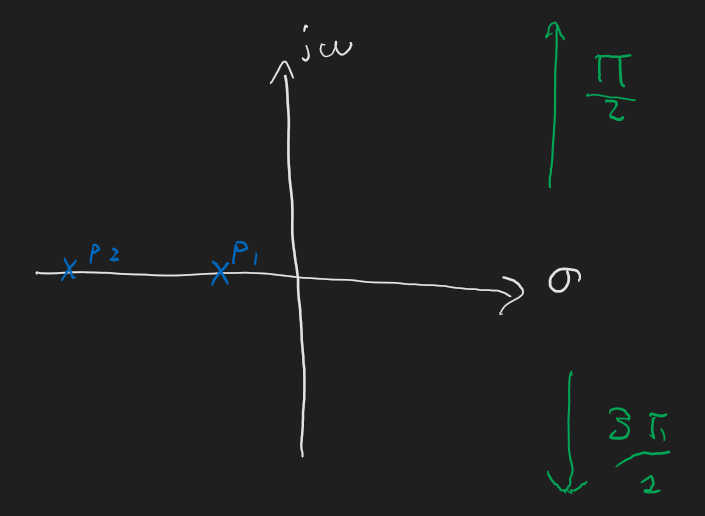 jω
π
2
p2
p1
σ
3π
2